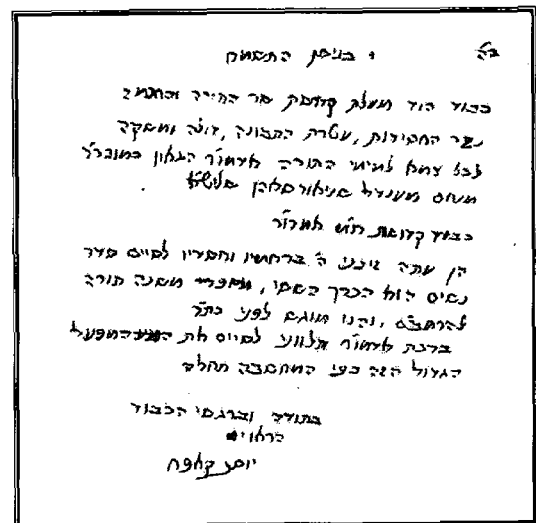 ב"ה ו בניסן התשמח
כבוד הוד מעלת קדושת שר התורה והחכמה
נזר החסידות, עטרת התבונה, דולה ומשקה
לכל צמא למימי התורה אדמו"ר הגאון כמוהר"ר
מנחם מענדל שניאורסאהן שליט"א
כבוד קדושת אדמו"ר
הן עתה זיכני ה' ברחמיו וחסדיו לסיים סדר
נשים הוא הכרך מספרי משנה תורה
להרמב"ם, והנו מוגש לפני כת"ר
ברכת אדמו"ר תלווני לסיים את המפעל
הגדול הזה כפי המחשבה תחלה
בתודה וברגשי הכבוד
הראוים
יוסף קאפח